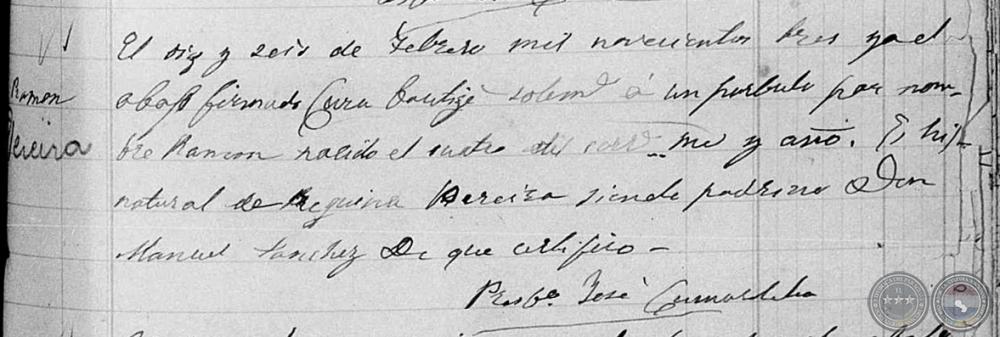 Ramon
Pereira
El diz y seis de Febrero mil novecientos tres yo el
abajo firmado Cura bautizé solem á un parbulo por nom-
bre Ramon nacido el cuatro del me y año. Es hijo
natural de Reguina Pereira siendo padrino Don
Manuel Sanchez De que certifico –
Presb.º José